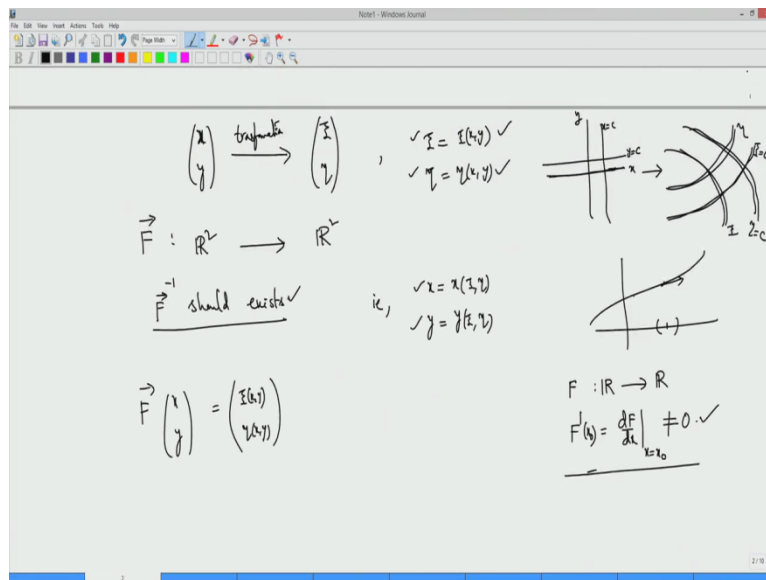 Note1 - Windows Journal
File Edit View Insert Actions Tools Help
Page Width
B I
(x y) trasformatio → (ξ η) , ✓ ξ = ξ(x,y) ✓
✓ η = η(x,y) ✓
y x=c y=c x → η ξ=c ξ η=c
F⃗ : ℝ² → ℝ²
F⃗⁻¹ should exists ✓ ie, ✓ x = x(ξ,η)
✓ y = y(ξ,η)
F⃗ (x y) = (ξ(x,y) η(x,y))
F : ℝ → ℝ
F'(x₀) = dF/dx |x=x₀ ≠ 0. ✓
2/10
2